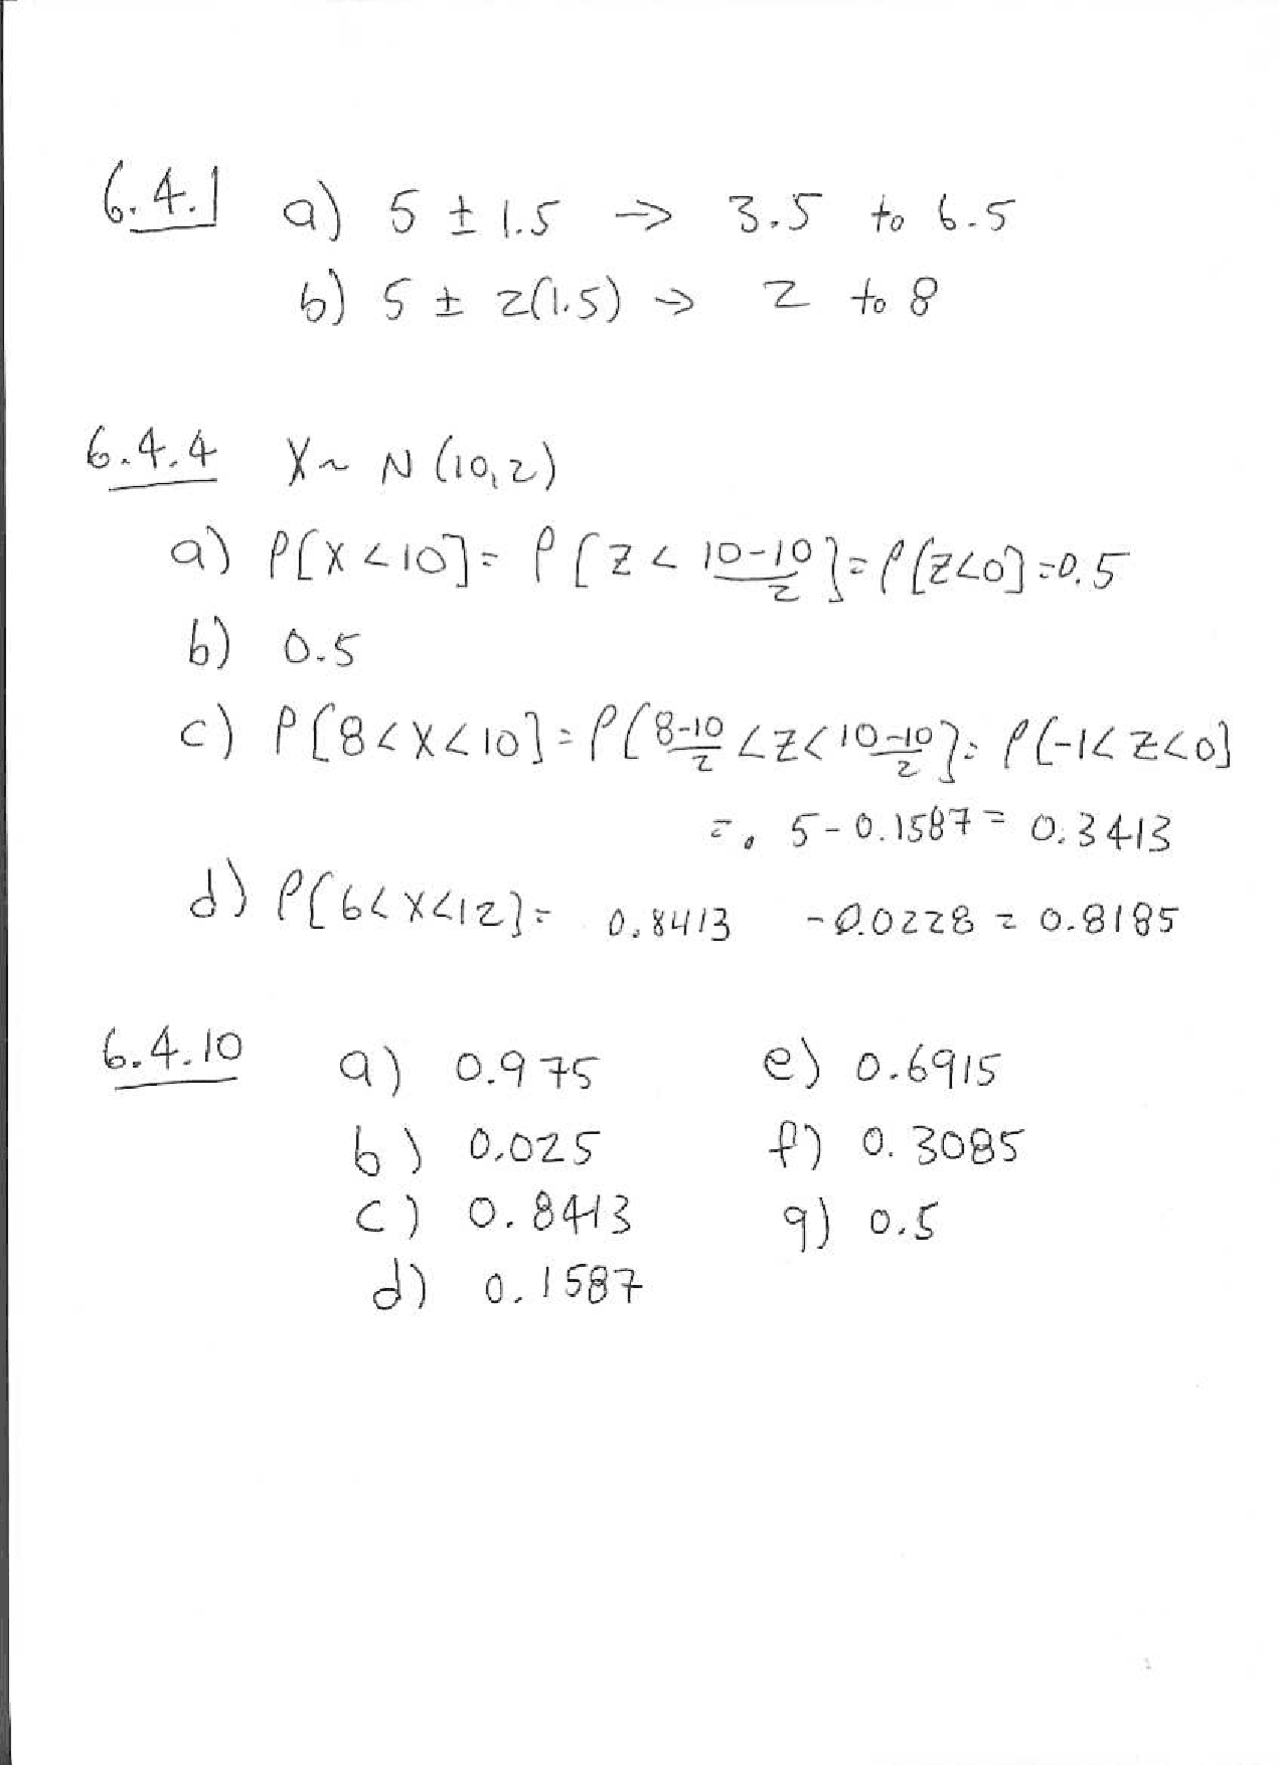 6.4.1 a) 5 ± 1.5 → 3.5 to 6.5
b) 5 ± 2(1.5) → 2 to 8
6.4.4 X ~ N(10,2)
a) P[X<10] = P[Z < (10-10)/2] = P[Z<0] = 0.5
b) 0.5
c) P[8<X<10] = P[(8-10)/2 < Z < (10-10)/2] = P[-1<Z<0]
= .5 - 0.1587 = 0.3413
d) P[6<X<12] = 0.8413 - 0.0228 = 0.8185
6.4.10 a) 0.975 e) 0.6915
b) 0.025 f) 0.3085
c) 0.8413 g) 0.5
d) 0.1587